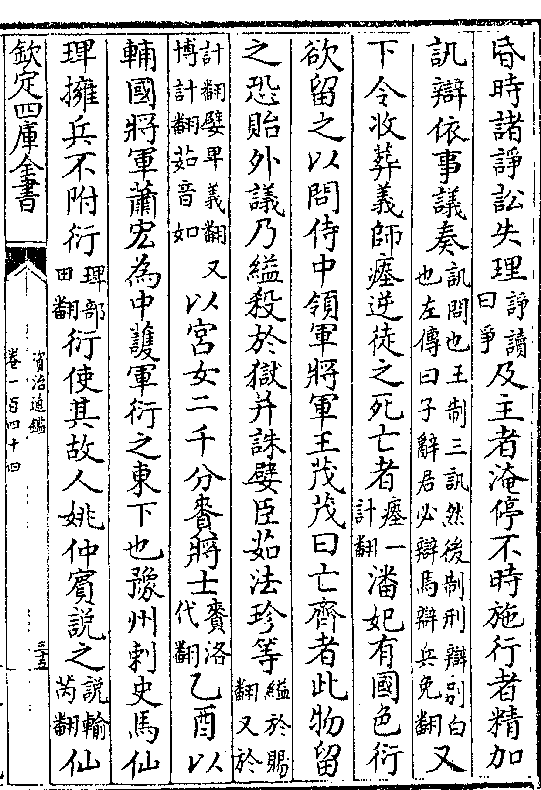 昬時諸諍訟失理諍讀曰爭及主者淹停不時施行者精加
訊辯依事議奏訊問也王制三訊然後制刑辯别白也左傳曰子辭君必辯焉辯兵免翻又
下令收葬義師瘞逆徒之死亡者瘞一計翻潘妃有國色衍
欲留之以問侍中領軍將軍王茂茂曰亡齊者此物留
之恐貽外議乃縊殺於獄并誅嬖臣茹法珍等縊於賜翻又於
計翻嬖卑義翻又博計翻茹音如以宫女二千分賚將士賚洛代翻乙酉以
輔國將軍蕭宏為中護軍衍之東下也豫州刺史馬仙
琕擁兵不附衍琕部田翻衍使其故人姚仲賓説之説輸芮翻仙
欽定四庫全書
資治通鑑
卷一百四十四
三五